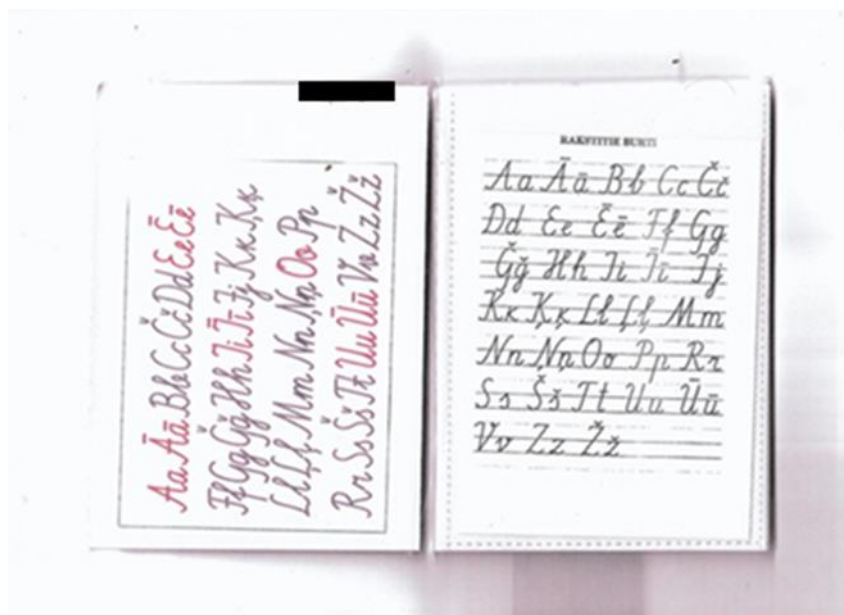 Aa Āā Bb Cc Čč Dd Ee Ēē
Ff Gg Ģģ Hh Ii Īī Jj Kk Ķķ
Ll Ļļ Mm Nn Ņņ Oo Pp
Rr Ss Šš Tt Uu Ūū Vv Zz Žž
RAKSTĪTIE BURTI
Aa Āā Bb Cc Čč
Dd Ee Ēē Ff Gg
Ģģ Hh Ii Īī Jj
Kk Ķķ Ll Ļļ Mm
Nn Ņņ Oo Pp Rr
Ss Šš Tt Uu Ūū
Vv Zz Žž